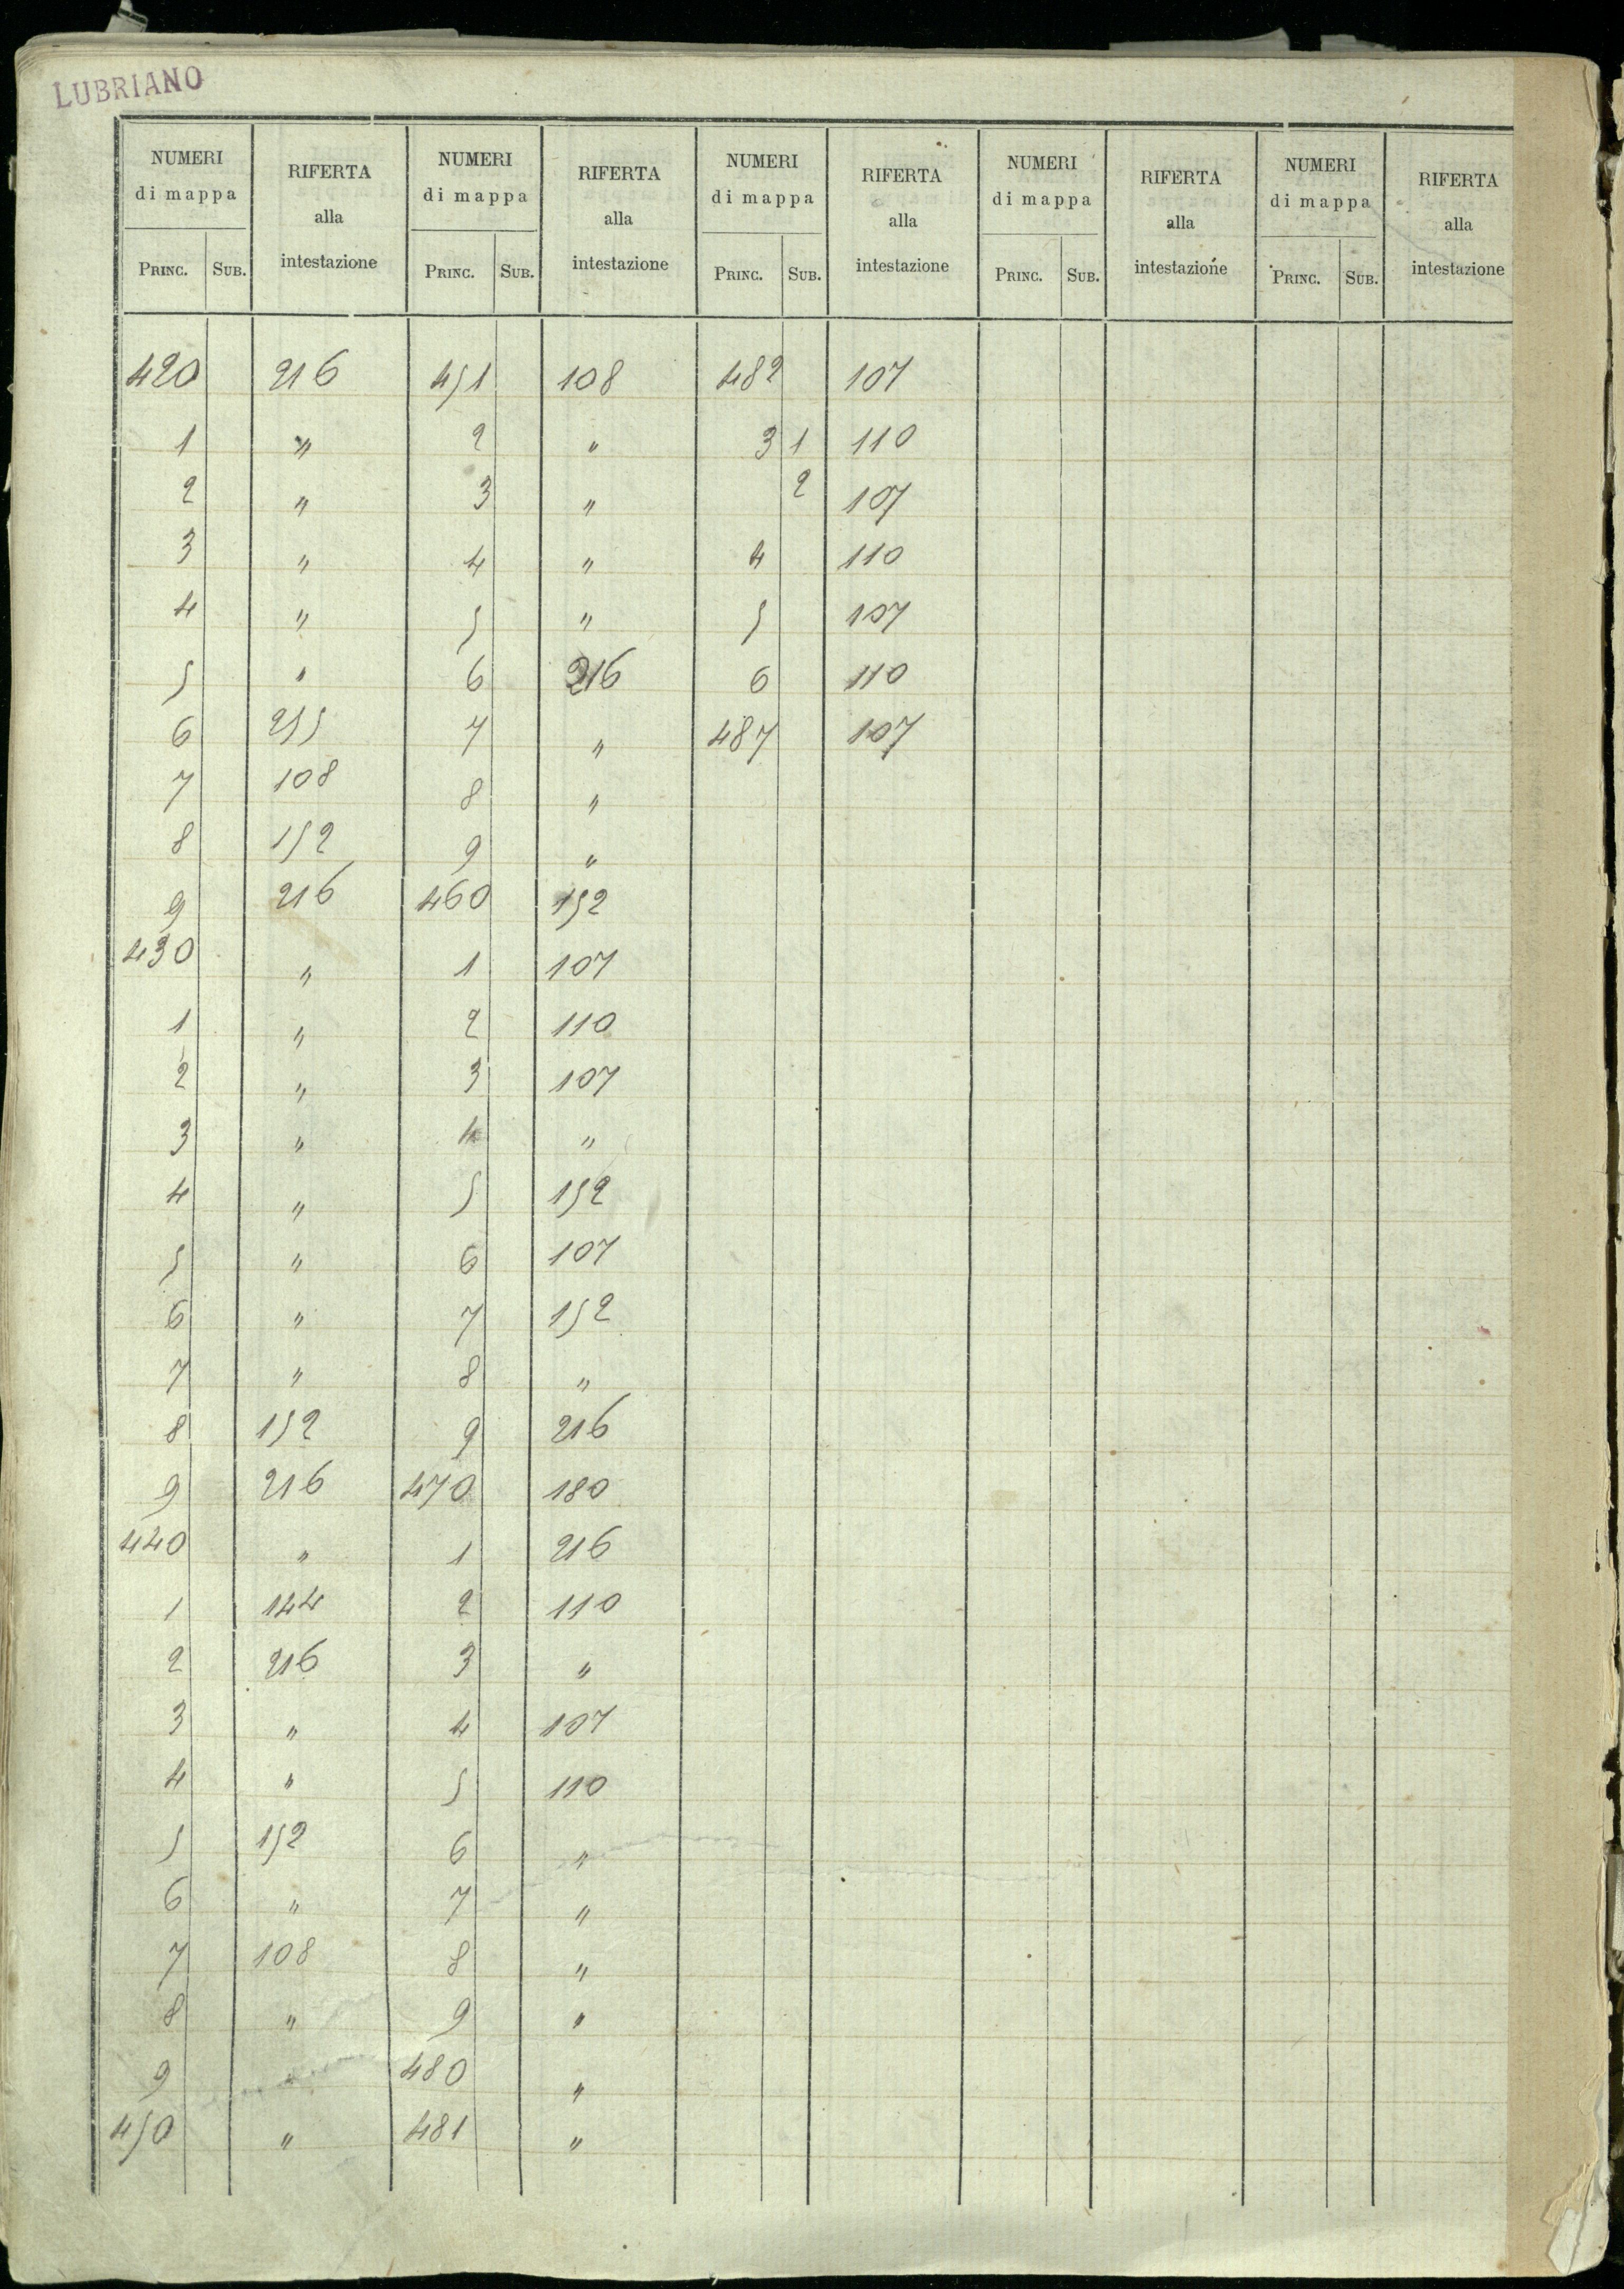 LUBRIANO
NUMERI di mappa RIFERTA alla intestazione NUMERI di mappa RIFERTA alla intestazione NUMERI di mappa RIFERTA alla intestazione NUMERI di mappa RIFERTA alla intestazione NUMERI di mappa RIFERTA alla intestazione
PRINC. SUB. PRINC. SUB. PRINC. SUB. PRINC. SUB. PRINC. SUB.
420 216 451 108 482 107
1 " 2 " 3 1 110
2 " 3 " 2 107
3 " 4 " 4 110
4 " 5 " 5 107
5 " 6 216 6 110
6 255 7 " 487 107
7 108 8 "
8 152 9 "
9 216 460 152
430 " 1 107
1 " 2 110
2 " 3 107
3 " 4 "
4 " 5 152
5 " 6 107
6 " 7 152
7 " 8 "
8 152 9 216
9 216 470 180
440 " 1 216
1 144 2 110
2 216 3 "
3 " 4 107
4 " 5 110
5 152 6 "
6 " 7 "
7 108 8 "
8 " 9 "
9 " 480 "
450 " 481 "